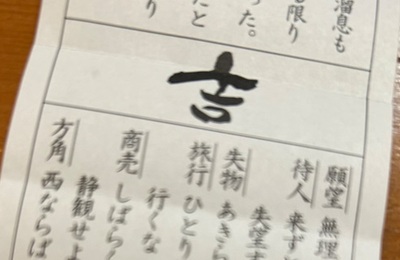 溜息も
も限り
った。
たと
り
吉
願望 無理
待人 来ず
失望す
失物 あきら
旅行 ひとり
行くな
商売 しばらく
静観せよ
方角 西ならば